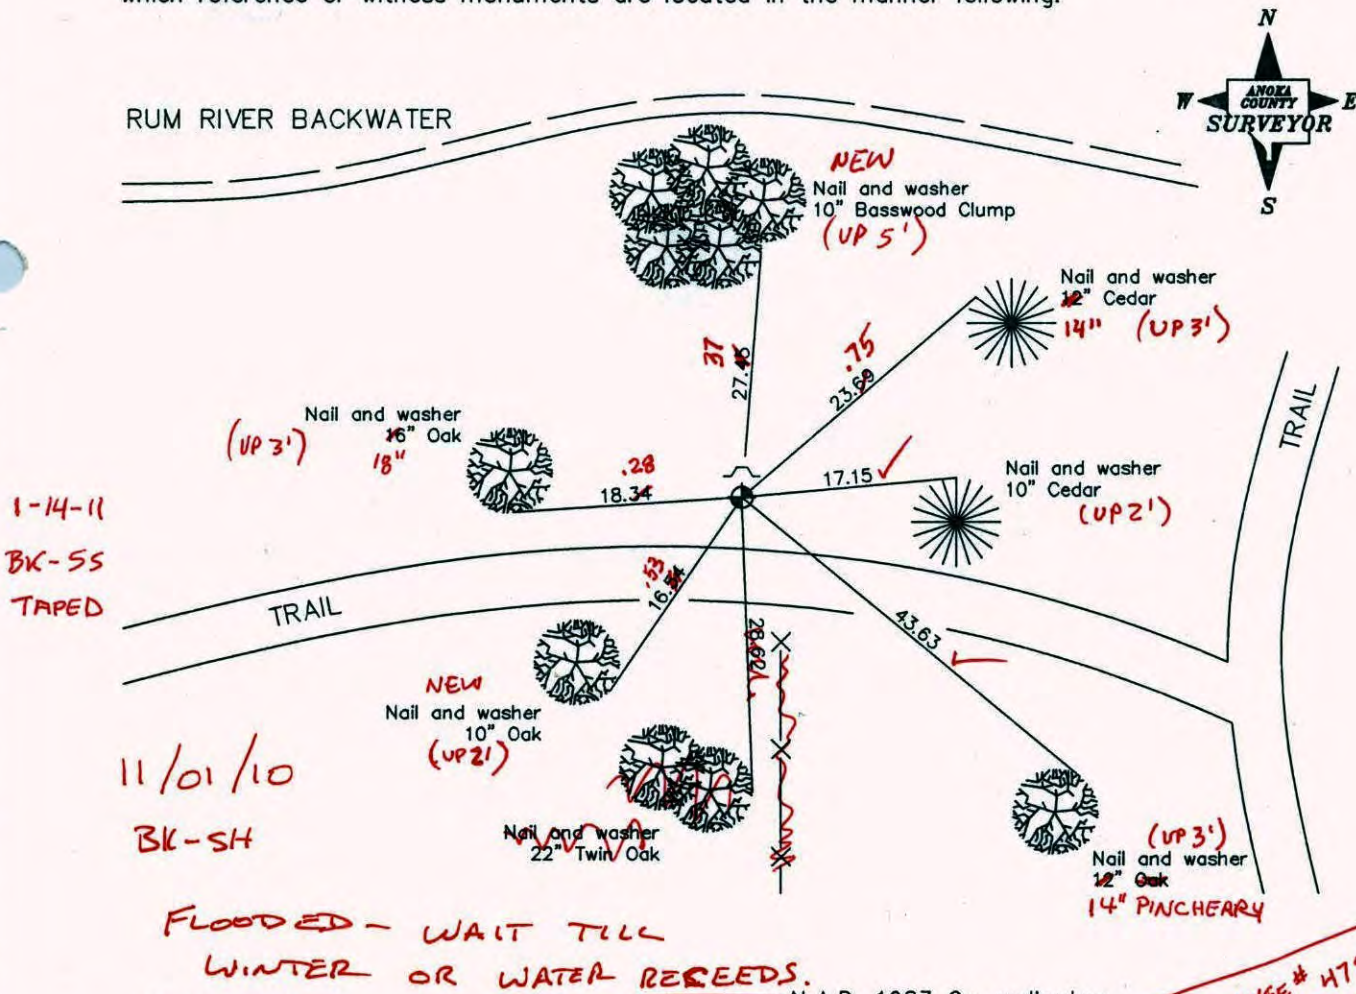 which reference or witness monuments are located in the manner following:
N
W
ANOKA
COUNTY
E
SURVEYOR
S
RUM RIVER BACKWATER
NEW
Nail and washer
10" Basswood Clump
(UP 5')
Nail and washer
12" Cedar
14" (UP 3')
37
27.45
.75
23.69
Nail and washer
(UP 3') 16" Oak
18"
.28
18.34
17.15 ✓
Nail and washer
10" Cedar
(UP 2')
TRAIL
1-14-11
BK-SS
TAPED
TRAIL
.53
16.54
28.62
43.63 ✓
NEW
Nail and washer
10" Oak
(UP 2')
11/01/10
BK-SH
Nail and washer
22" Twin Oak
(UP 3')
Nail and washer
12" Oak
14" PINCHEARY
FLOODED - WAIT TILL
WINTER OR WATER RECEEDS.